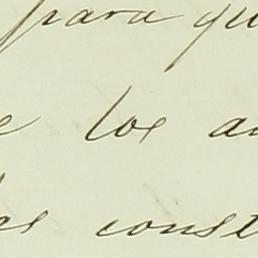 para qu
e los a
as const